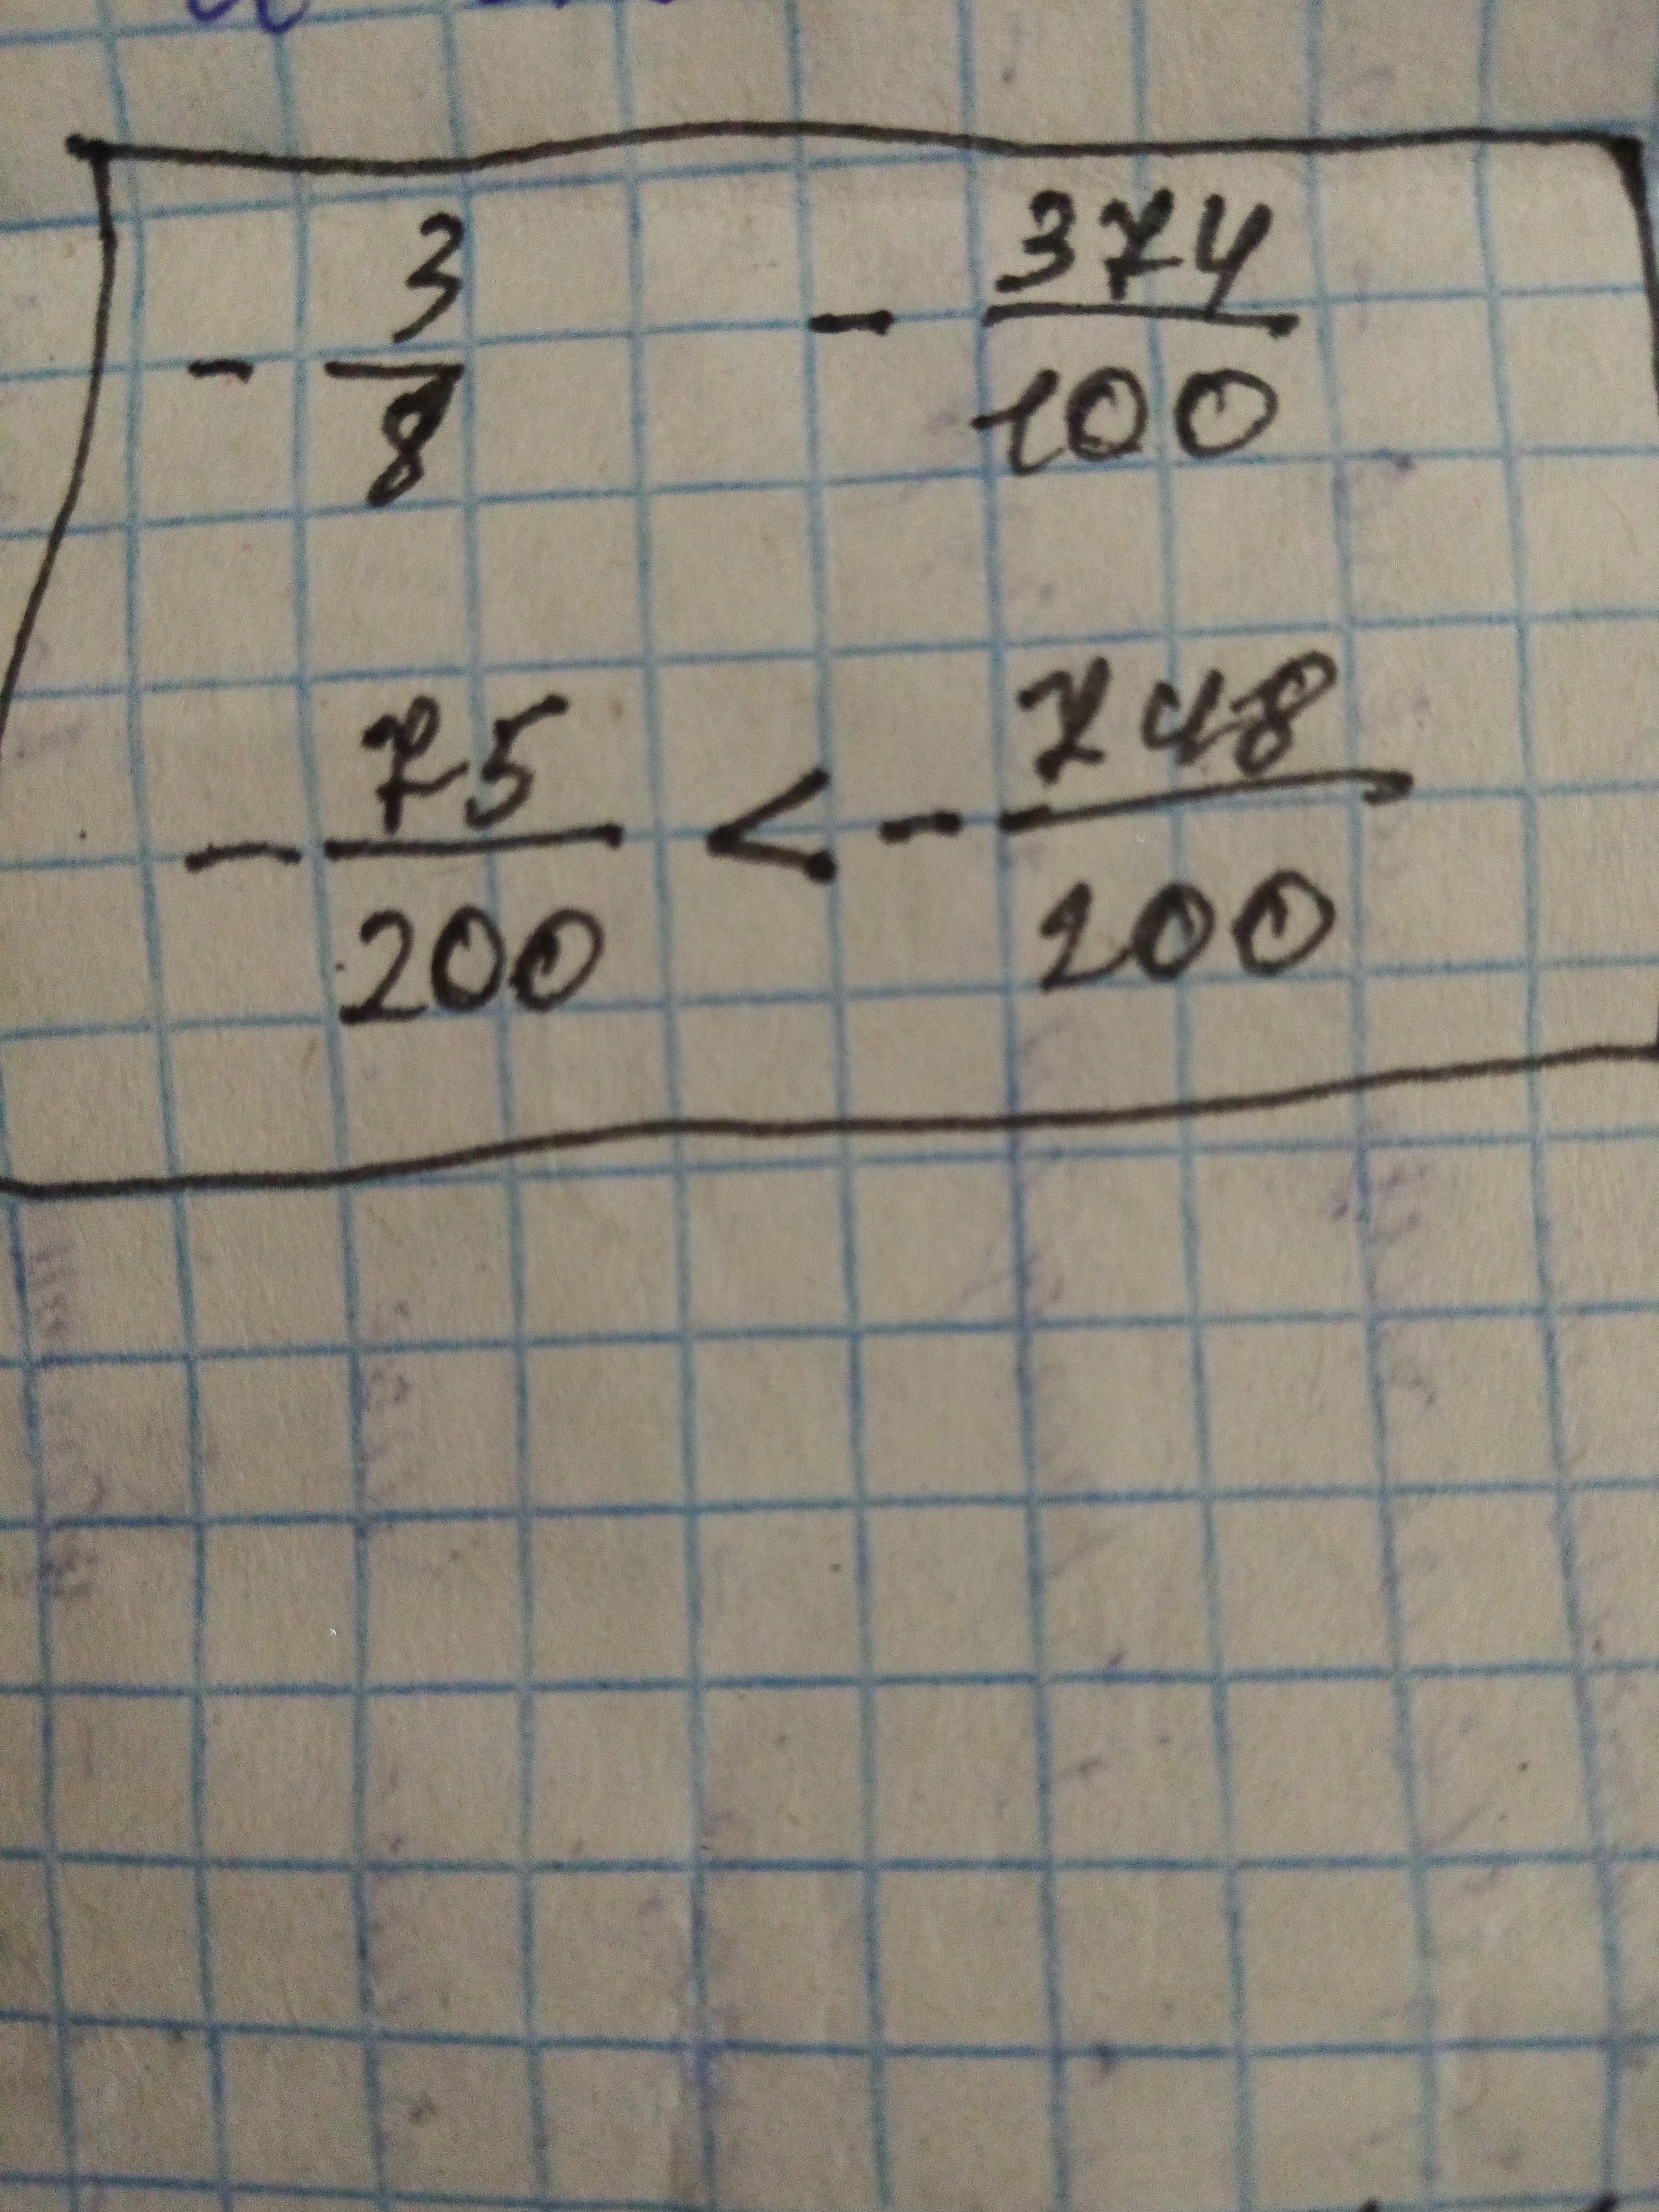 - 3/8 - 374/100
- 75/200 < - 748/200